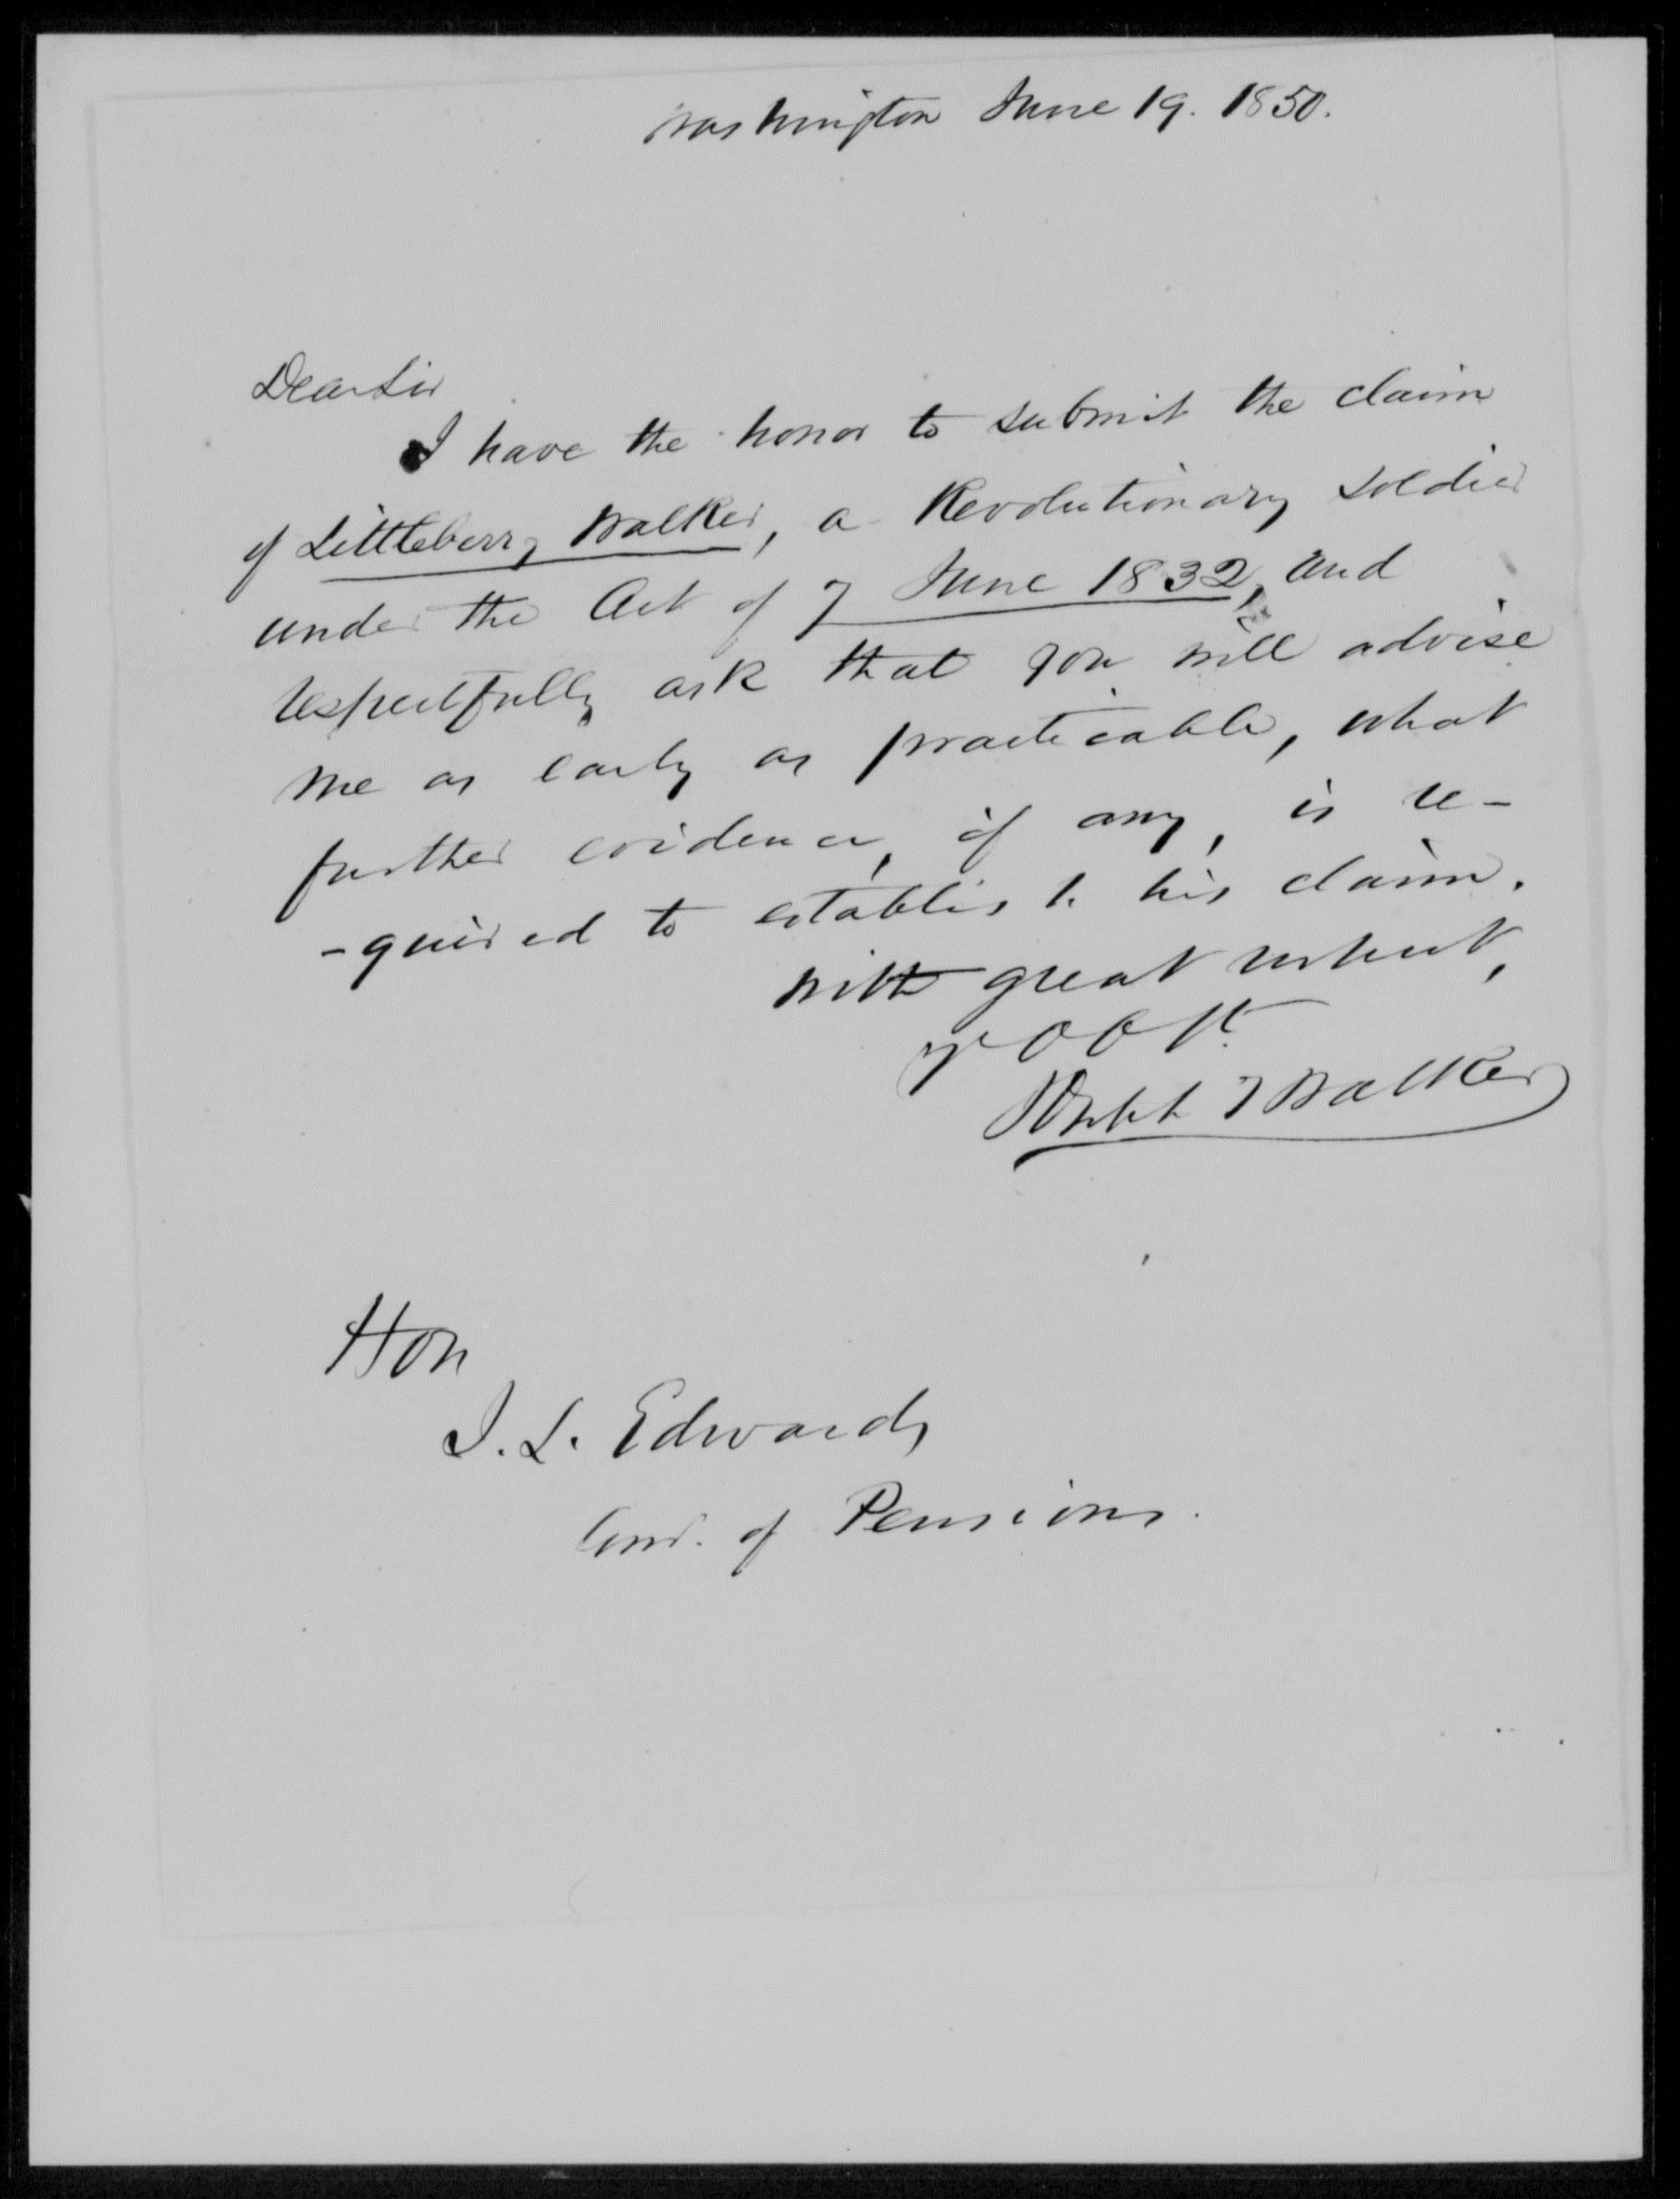 Washington June 19. 1850.
Dear Sir
I have the honor to submit the claim
of Littleberry Walker, a Revolutionary soldier
under the Act of 7 June 1832, and
respectfully ask that you will advise
me as early as practicable, what
further evidence, if any, is re-
-quired to establish his claim.
With great respect,
Yr O O St
Robt J Walker
Hon
J. L. Edwards
Comr. of Pensions.